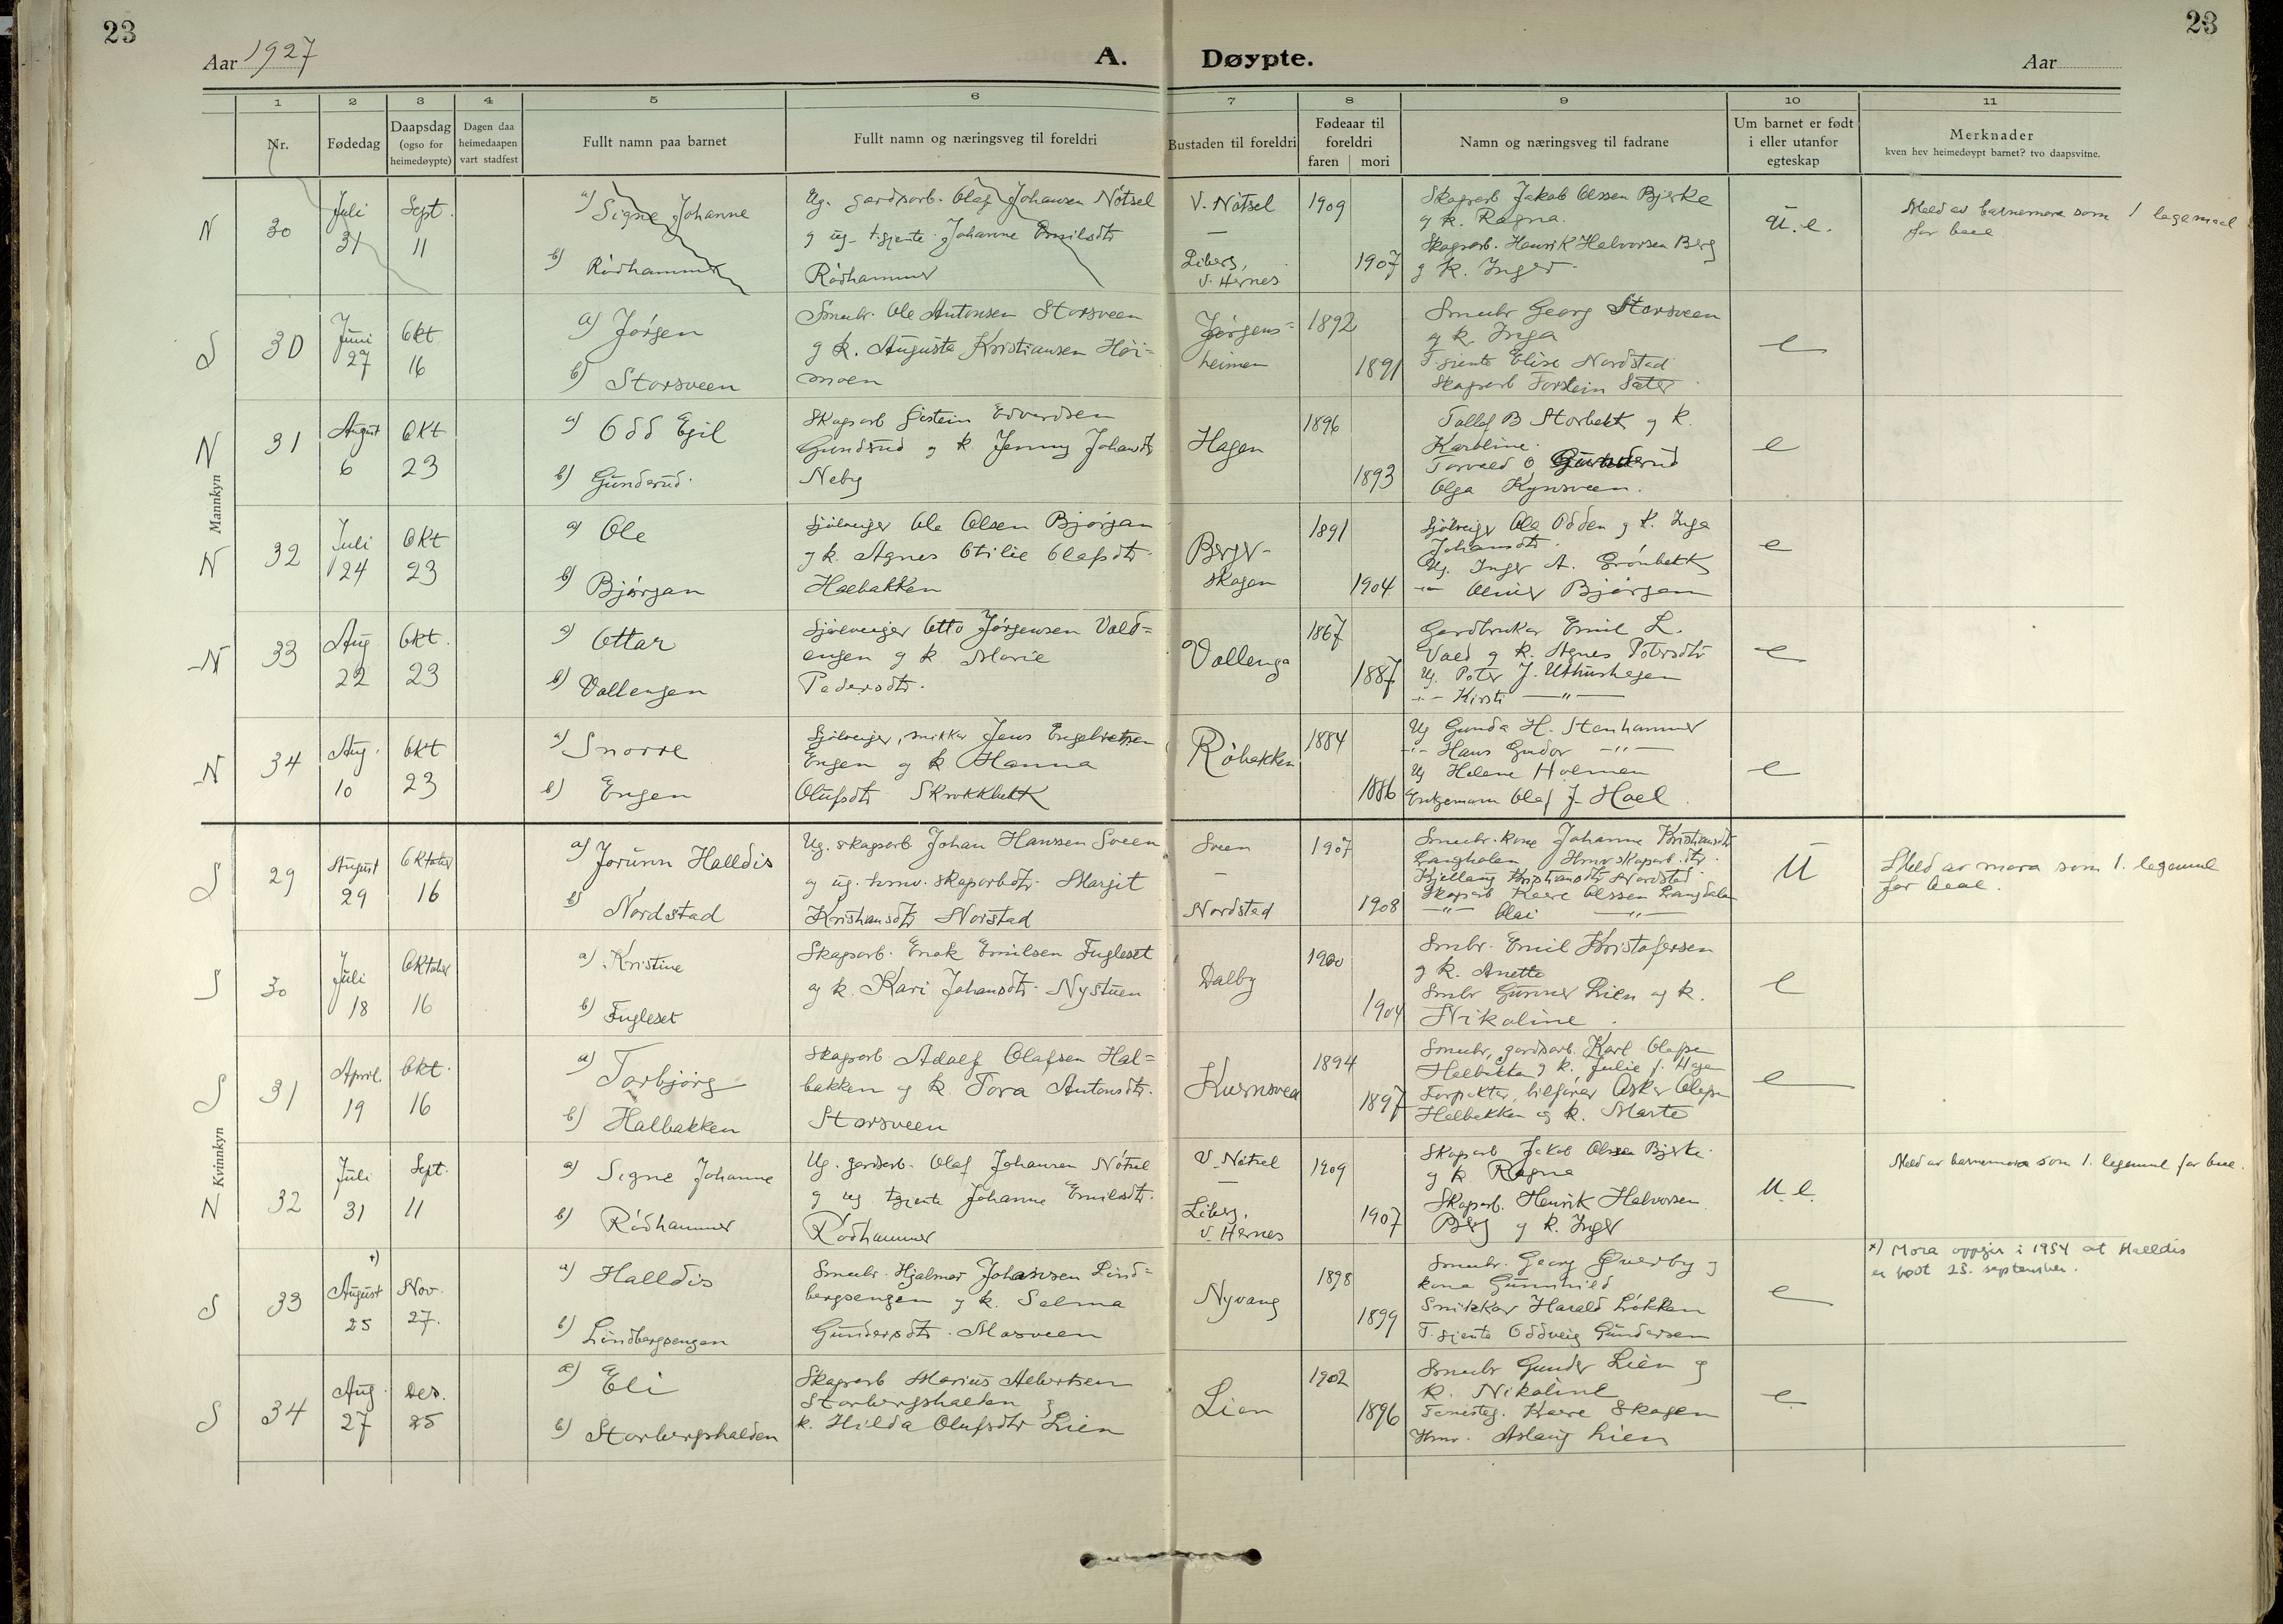 23
23
Aar 1927
A. Døypte.
Aar
1 2 3 4 5 6 7 8 9 10 11
Nr.
Fødedag
Daapsdag (ogso for heimedøypte)
Dagen daa heimedaapen vart stadfest
Fullt namn paa barnet
Fullt namn og næringsveg til foreldri
Bustaden til foreldri
Fødeaar til foreldri
faren mori
Namn og næringsveg til fadrane
Um barnet er født i eller utanfor egteskap
Merknader
kven hev heimedøypt barnet? tvo daapsvitne.
Mannkyn
N 30 Juli 31 Sept. 11
a) Signe Johanne
b) Rödhammer
Ug. gardsarb. Olaf Johansen Nötsel
og ug. t.gjente Johanne Emilsdtr
Rödhammer
V. Nötsel
Liberg,
V. Hernes
1909
1907
Skogsarb Jakob Olssen Bjerke
og k. Ragna.
Skogsarb. Henrik Halvorsen Berg
og k. Inger
U. e.
Meld av barnemora som 1 legemaal
for bae
S 30 Juni 27 Okt 16
a) Jørgen
b) Storsveen
Smubr. Ole Antonsen Storsveen
og k. Augusta Kristiansen Höi-
moen
Jørgens-
heimen
1892
1891
Smubr Georg Storsveen
og k. Inga
T.gjente Elise Nordstad
Skogsarb Torstein Sæter
e
N 31 August 6 Okt 23
a) Odd Egil
b) Gunderud
Skogsarb Øistein Edvardsen
Gundrud og k. Jenny Johansdtr
Neby
Hagen
1896
1893
Tollef B Storbekk og k.
Karoline
Torvald O
Olga Kynsveen.
e
N 32 Juli 24 Okt 23
a) Ole
b) Bjørgan
Sjølveiger Ole Olsen Bjørgan
og k. Agnes Otilie Olafsdtr.
Haebakken
Berger-
skogen
1891
1904
Sjølveiger Ole Odden og k. Inga
Johansdtr.
Ug. Inger A. Grönbekk
-"- Oliver Bjørgan
e
N 33 Aug 22 Okt. 23
a) Ottar
b) Vollengen
Sjølveiger Otto Jørgensen Vold-
engen og k. Marie
Pedersdtr.
Vollenga
1867
1887
Gardbruker Emil L.
Vold og k. Agnes Petersdtr
Ug. Peter J. Uthushagen
-"- Kirsti -"-
e
N 34 Aug. 10 Okt 23
a) Snorre
b) Engen
Sjølveiger, snikker Jens Engebretsen
Engen og k Hanna
Olufsdtr Skrokkbekk
Röbekken
1884
1886
Ug Gunda H. Stenhammer
-"- Hans Gudor -"-
Ug Helene Holmen
Enkjemann Olaf J. Hoel.
e
Kvinnkyn
S 29 August 29 Oktober 16
a) Jorunn Halldis
b) Nordstad
Ug. skogsarb Johan Hanssen Sveen
og ug. hmv. skogsarbdtr. Margit
Kristiansdtr Norstad
Sveen
Nordstad
1907
1908
Smubr. kone Johanne Kristiansdtr
Langholen, Hmv skogarb. dtr.
Kjellaug Kristiansdtr Nordstad.
Skogsarb Kaare Olssen
-"- Olai -"-
U
Meld av mora som 1. legemaal
for bae.
S 30 Juli 18 Oktober 16
a) Kristine
b) Fugleset
Skogsarb. Enok Emilsen Fugleset
og k. Kari Johansdtr. Nystuen
Dalby
1900
1904
Smbr. Emil Kristofersen
og k. Anette
Smbr Gunner Lien og k.
Nikoline.
e
S 31 April. 19 Okt. 16
a) Torbjørg
b) Halbakken
Skogsarb. Adolf Olafsen Hal-
bakken og k. Tora Antonsdtr.
Storsveen
Kvernsveen
1894
1897
Smubr, gardsarb. Karl Olafsen
Halbakken og k. Julie f. Hagen
Forpakter, bilfører Asker Olafsen
Halbakken og k. Marte
e
N 32 Juli 31 Sept. 11
a) Signe Johanne
b) Rödhammer
Ug. gardsarb. Olaf Johansen Nötsel
og ug tgjente Johanne Emilsdtr.
Rödhammer
V. Nötsel
Liberg,
V. Hernes
1909
1907
Skogsarb Jakob Olssen Bjerke
og k. Ragna
Skogsarb. Henrik Halvorsen
Berg og k. Inger
U. e.
Meld av barnemora som 1. legemaal for bae.
S 33 +) August 25 Nov. 27.
a) Halldis
b) Lindbergsengen
Smubr. Hjalmar Johansen Lind-
bergsengen og k. Selma
Gundersdtr. Mosveen
Nyvang
1898
1899
Smubr. Georg Øverby og
kona Gunnhild
Snikkar Harald Løkken
T. gjente Oddveig Gundersen
e
x) Mora oppgir i 1954 at Halldis
er født 25. september.
S 34 Aug. 27 Des. 25
a) Eli
b) Storbergshalden
Skogsarb Marius Albertsen
Storbergshalden og
k. Hilda Olufsdtr Lien
Lien
1902
1896
Smubr Gunder Lien og
k. Nikoline
Kaare Skogen
Hmv. Aslaug Lien
e